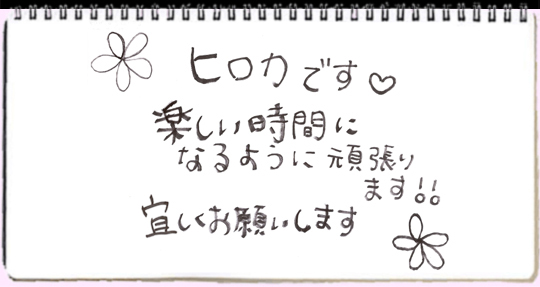 ヒロカです♡
楽しい時間に
なるように頑張り
ます!!
宜しくお願いします